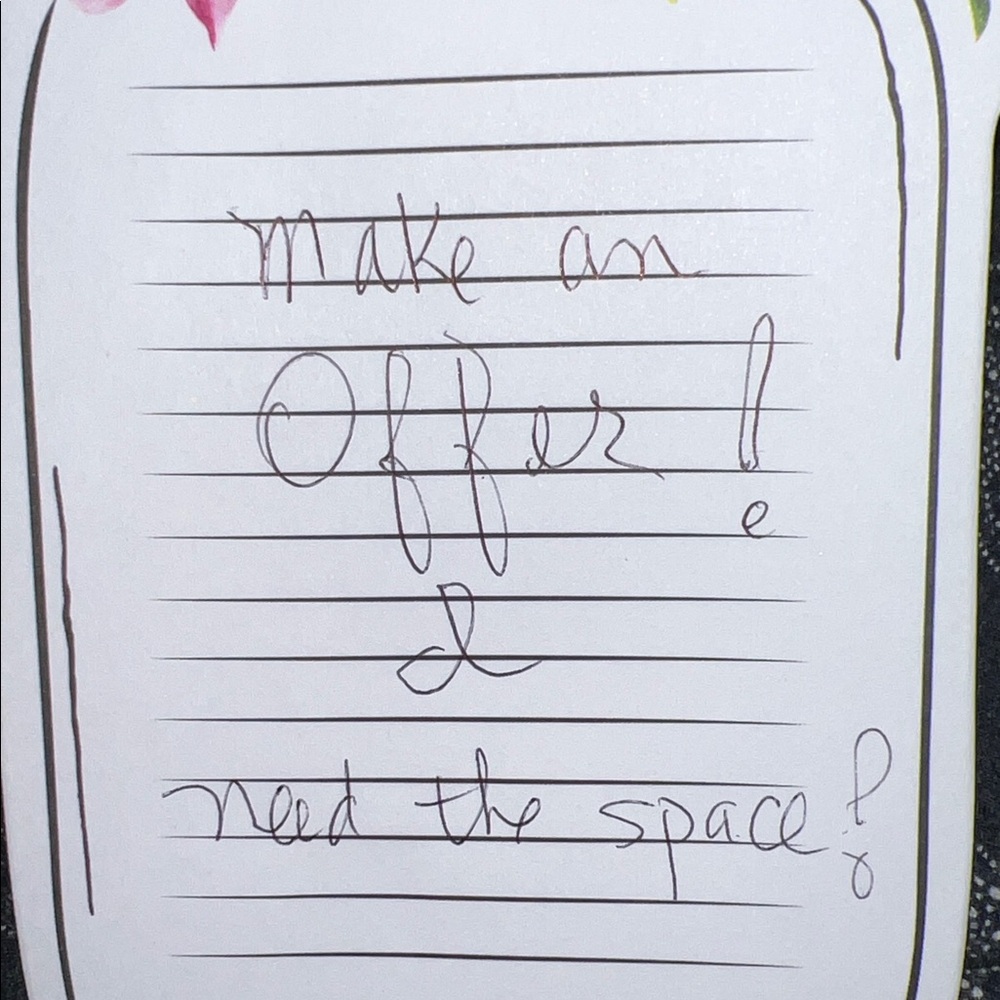 Make an
Offer!
I
need the space!